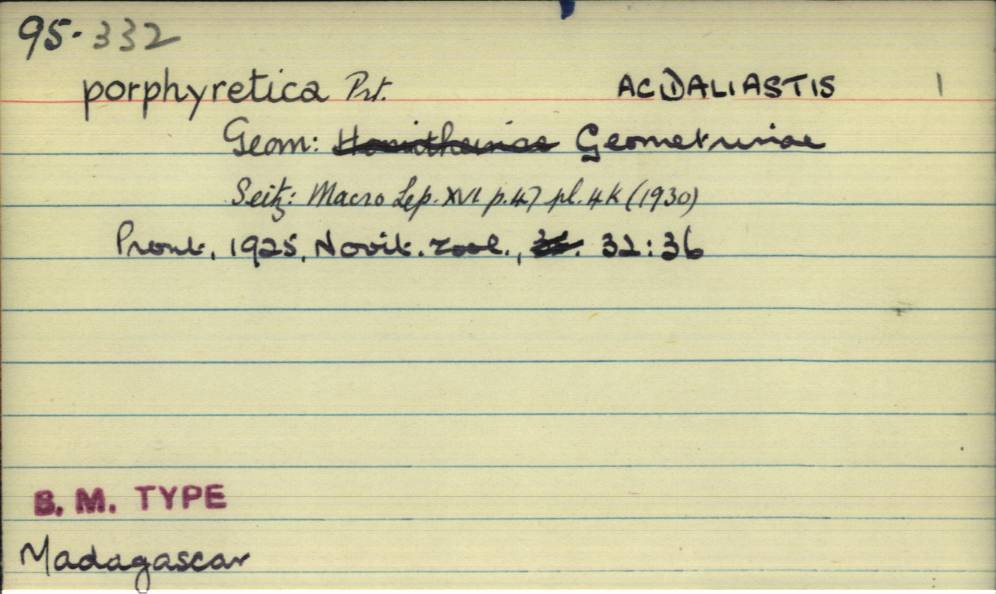 95.332
porphyretica Prt. ACIDALIASTIS 1
Geom: Hemitheinae Geometrinae
Seitz: Macro Lep. XVI p.47 pl.4k (1930)
Prout, 1925, Novit. zool., 32:36
B. M. TYPE
Madagascar